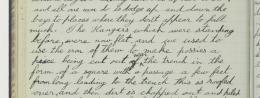 and all we
to dodge up and down the
bays to places where they dont appear to fall
much. The Hangers which were standing
before were now flat, and we used to
use the iron of them to make possies a
posie being cut out of the trench in the
form of a square with a passage a few feet
from long leading to the trench this is roofed
over and then dirt is chopped out and piled